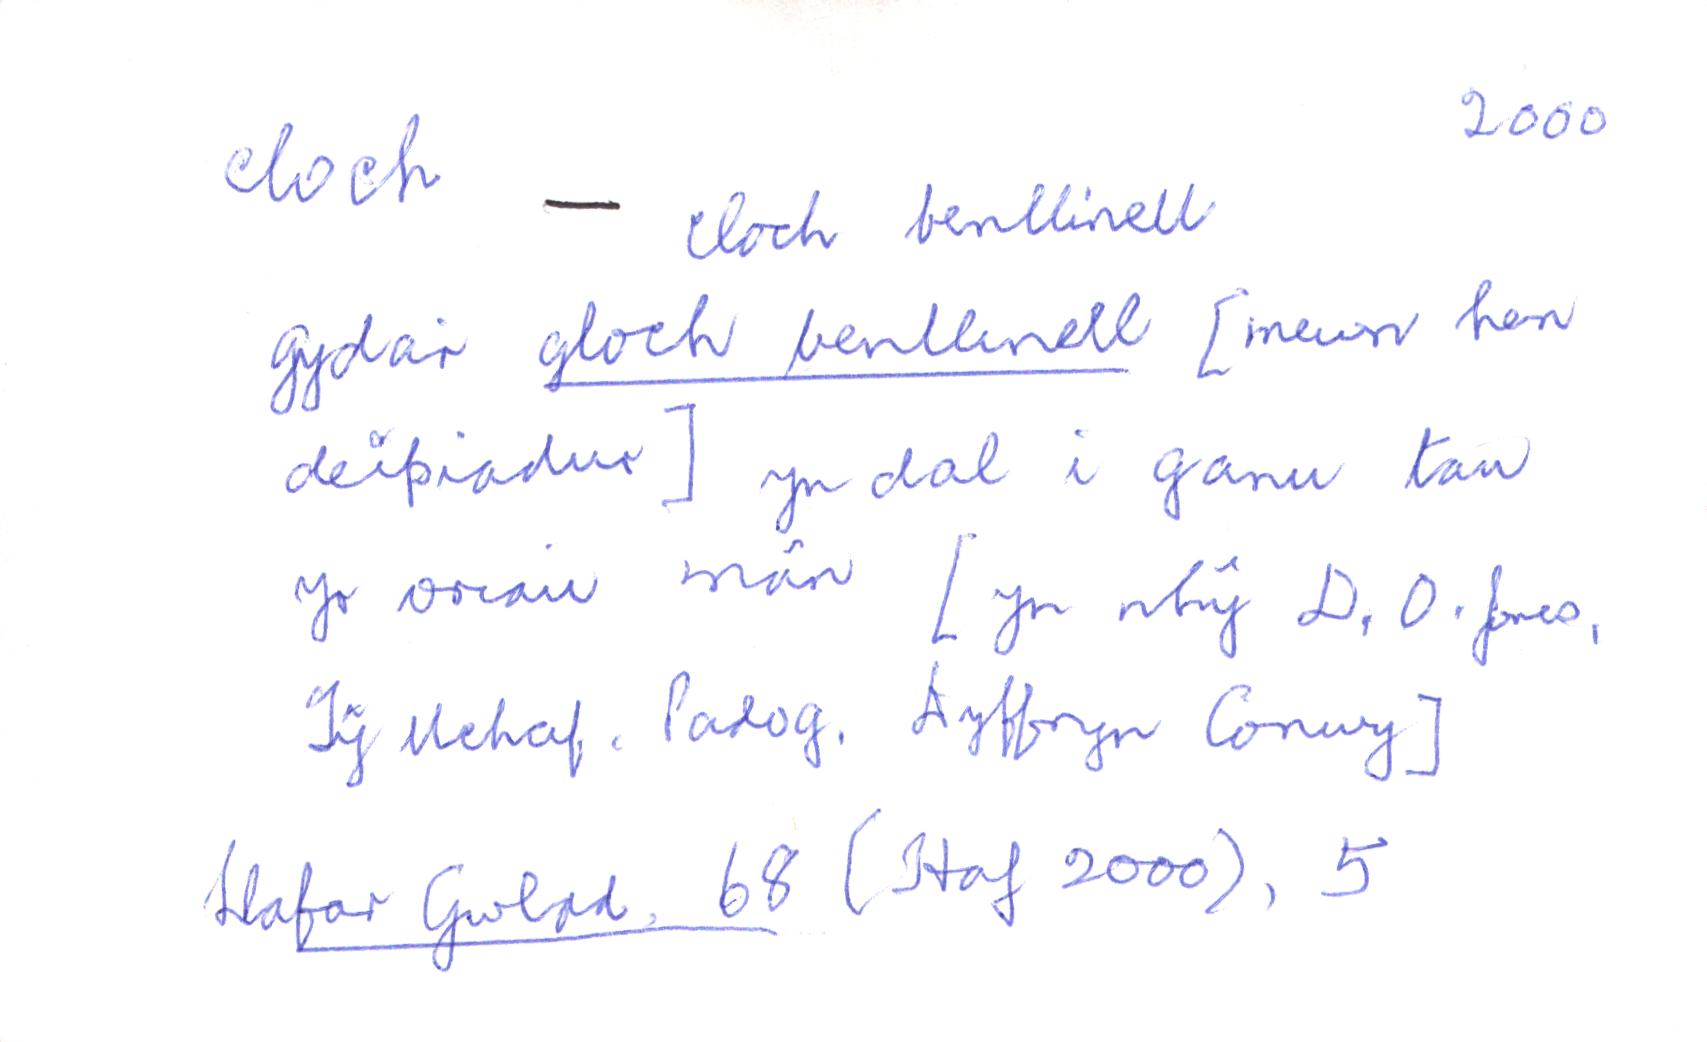 2000
cloch — cloch benllinell
gyda'r gloch benllinell [mewn hen
deipiadur] yn dal i ganu tan
yr oriau mân [yn nhŷ D. O. Jones,
Tŷ Uchaf. Padog. Dyffryn Conwy]
Llafar Gwlad. 68 (Haf 2000), 5